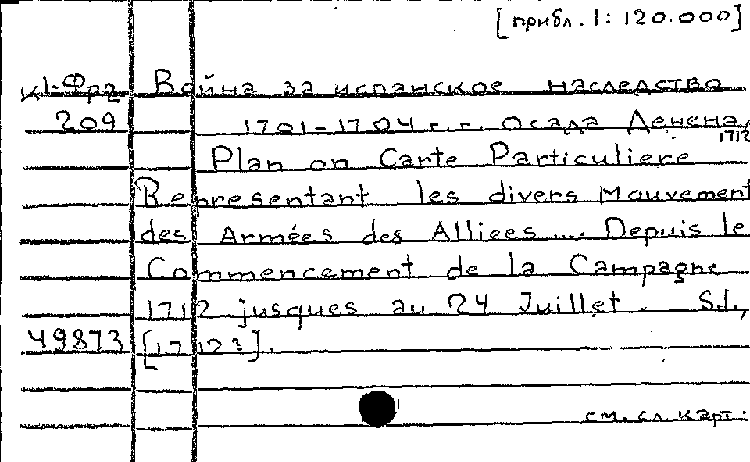 [прибл. 1:120.000]
К1-Фра Война за испанское наследство
209 1701-1704 г.г. Осада Денена, 1712
Plan on Carte Particuliere
Representant les divers Mouvement
des Armées des Alliees ... Depuis le
Commencement de la Campagne
1712 jusques au 24 Juillet. S.l.,
49873 [1712?].
см. сл. карт: